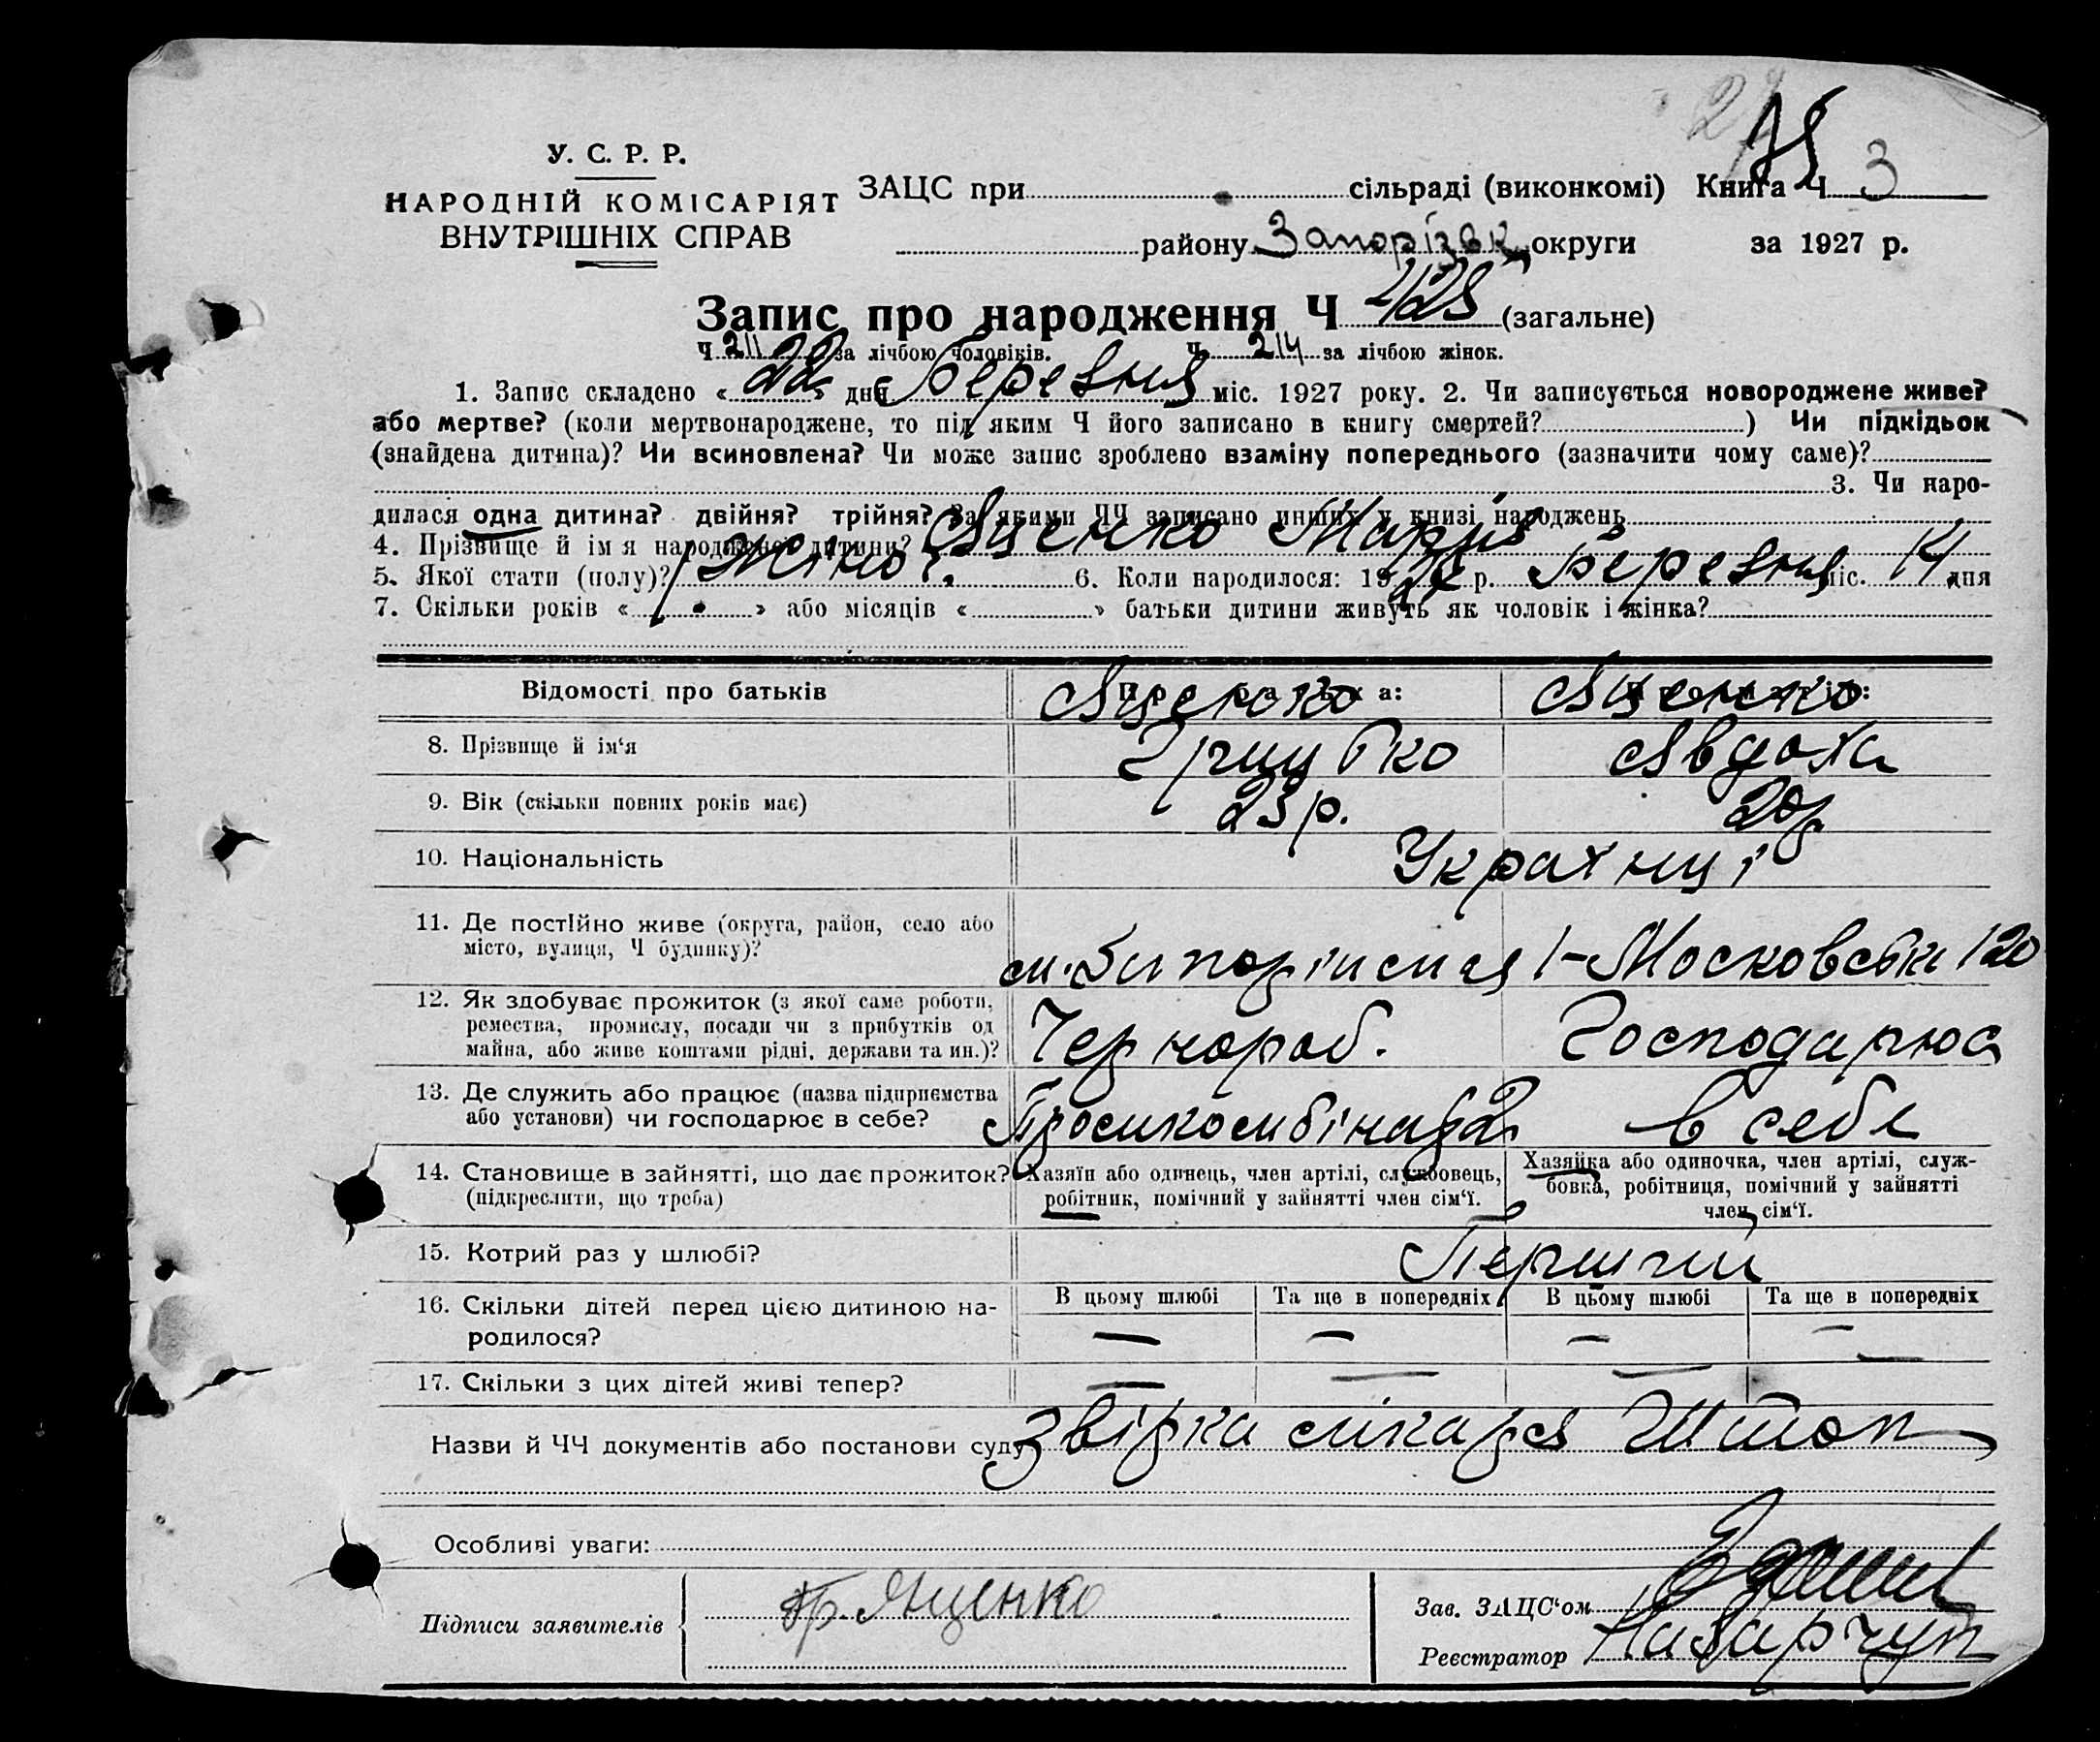 У. С. Р. Р.
НАРОДНІЙ КОМІСАРІЯТ
ВНУТРІШНІХ СПРАВ
ЗАЦС при сільраді (виконкомі) Книга Ч 3
району Запорізьк. округи за 1927 р.
Запис про народження Ч 425 (загальне)
Ч 211 за лічбою чоловіків. Ч 214 за лічбою жінок.
1. Запис складено « 22 » дня Березня міс. 1927 року. 2. Чи записується новороджене живе?
або мертве? (коли мертвонароджене, то під яким Ч його записано в книгу смертей? ) Чи підкідьок
(знайдена дитина)? Чи всиновлена? Чи може запис зроблено взаміну попереднього (зазначити чому саме)?
3. Чи наро-
дилася одна дитина? двійня? трійня? За якими ЧЧ записано инших у книзі народжень
4. Прізвище й ім я народженої дитини? Яценко Марія
5. Якої стати (полу)? Жіно?. 6. Коли народилося: 1927 р. Березня міс. 14 дня
7. Скільки років « » або місяців « » батьки дитини живуть як чоловік і жінка?
Відомості про батьків
Про батька: Про матір:
Яценко Яценко
8. Прізвище й ім‘я Грицько Явдоха
9. Вік (скільки повних років має) 23 р. 20 р
10. Національність Українці
11. Де постІйно живе (округа, район, село або
місто, вулиця, Ч будинку)?
м. Запоріжжя 1-Московська 120
12. Як здобуває прожиток (з якої саме роботи,
ремества, промислу, посади чи з прибутків од
майна, або живе коштами рідні, держави та ин.)?
Чернороб. Господарює
13. Де служить або працює (назва підприємства
або установи) чи господарює в себе?
в себе
14. Становище в зайнятті, що дає прожиток?
(підкреслити, що треба)
Хазяїн або одинець, член артілі, службовець,
робітник, помічний у зайнятті член сім‘ї.
Хазяйка або одиночка, член артілі, служ-
бовка, робітниця, помічний у зайнятті
член сім‘ї.
15. Котрий раз у шлюбі? Перший
16. Скільки дітей перед цією дитиною на-
родилося?
В цьому шлюбі Та ще в попередніх В цьому шлюбі Та ще в попередніх
— — — —
17. Скільки з цих дітей живі тепер? — — — —
Назви й ЧЧ документів або постанови суду
Особливі уваги:
Підписи заявителів Гр. Яценко
Зав. ЗАЦС‘ом
Реєстратор Назарчук